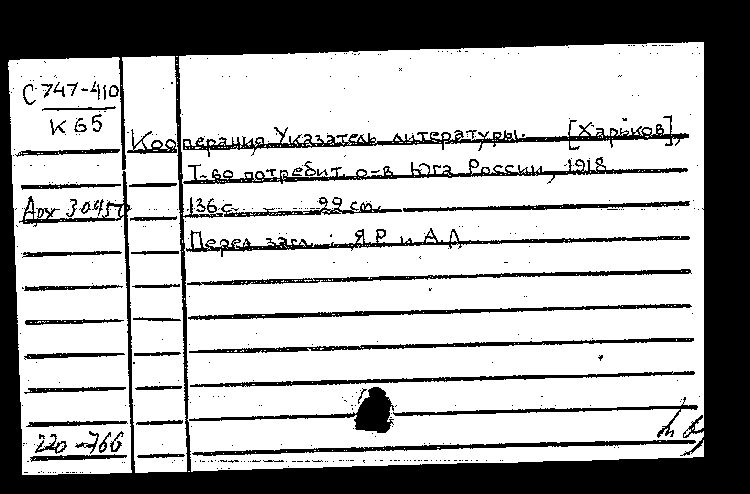 С 747-410
К 65
Кооперация. Указатель литературы. [Харьков],
Т-во потребит. о-в Юга России, 1918
Арх
136 с. 22 см.
Перед загл.: Я.Р. и А.Л.
220-766